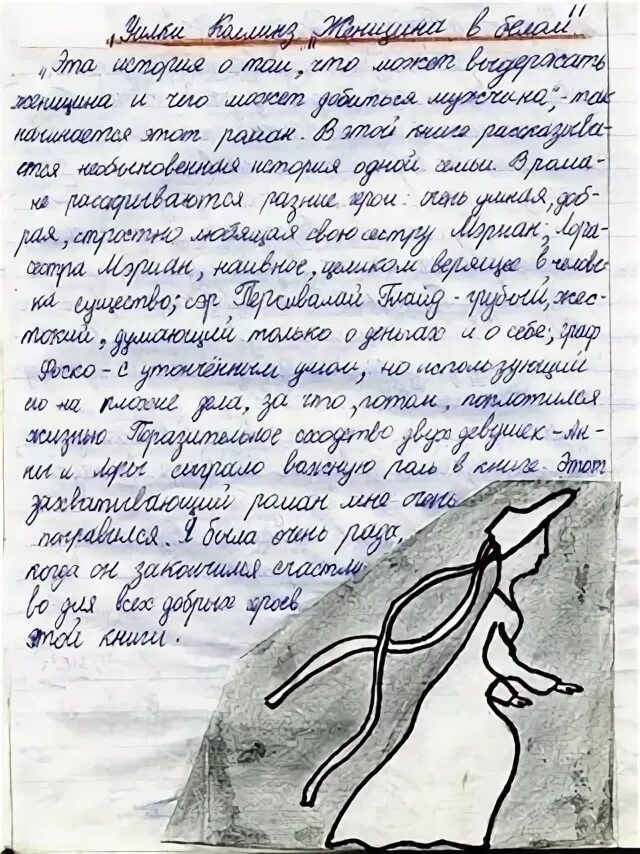 „Уилки Коллинз „Женщина в белом"
„Эта история о том, что может выдержать
женщина и чего может добиться мужчина",- так
начинается этот роман. В этой книге рассказыва-
ется необыкновенная история одной семьи. В рома-
не раскрываются разные герои: очень умная, доб-
рая, страстно любящая свою сестру Мэриан; Лора-
сестра Мэриан, наивное, целиком верящее в челове-
ка существо; сэр Персиваль Глайд - грубый, жес-
токий, думающий только о деньгах и о себе; граф
Фоско - с утончённым умом, но использующий
его на плохие дела, за что, потом, поплотился
жизнью. Поразительное сходство двух девушек - Ан-
ны и Лоры сыграло важную роль в книге. Этот
захватывающий роман мне очень
понравился. Я была очень рада,
когда он закончился счастли-
во для всех добрых героев
этой книги.